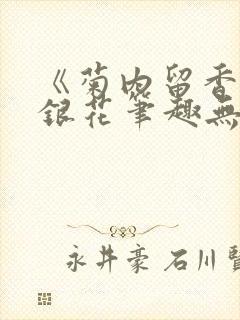 《菊内留香
銀花筆趣無
永井豪 石川賢